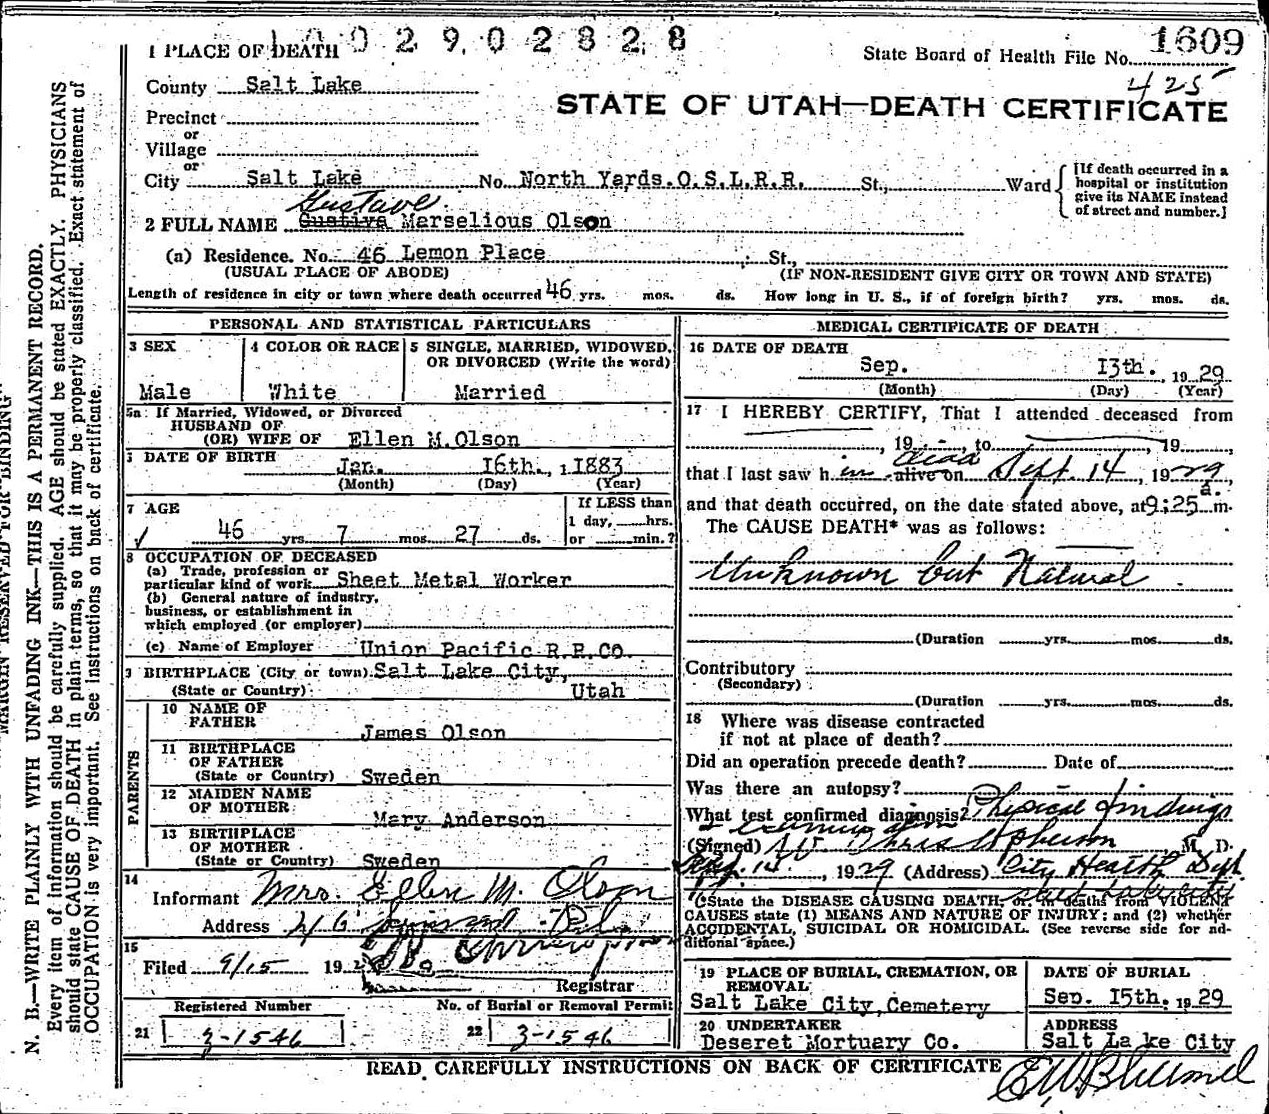 1 0 0 2 9 0 2 8 2 8
1609
1 PLACE OF DEATH
State Board of Health File No.
425
County Salt Lake
STATE OF UTAH—DEATH CERTIFICATE
Precinct
or
Village
or
City Salt Lake No. North Yards.O.S.L.R.R. St., Ward
[If death occurred in a
hospital or institution
give its NAME instead
of street and number.]
Gustave
2 FULL NAME Gustiva Marselious Olson
(a) Residence. No. 46 Lemon Place St.,
(USUAL PLACE OF ABODE) (IF NON-RESIDENT GIVE CITY OR TOWN AND STATE)
Length of residence in city or town where death occurred 46 yrs. mos. ds. How long in U. S., if of foreign birth? yrs. mos. ds.
PERSONAL AND STATISTICAL PARTICULARS
3 SEX
Male
4 COLOR OR RACE
White
5 SINGLE, MARRIED, WIDOWED,
OR DIVORCED (Write the word)
Married
5a If Married, Widowed, or Divorced
HUSBAND OF
(OR) WIFE OF Ellen M.Olson
DATE OF BIRTH
Jan. 16th., 1883
(Month) (Day) (Year)
7 AGE
46 yrs. 7 mos. 27 ds.
If LESS than
1 day, hrs.
or min.?
8 OCCUPATION OF DECEASED
(a) Trade, profession or
particular kind of work Sheet Metal Worker
(b) General nature of industry,
business, or establishment in
which employed (or employer)
(c) Name of Employer Union Pacific R.R.CO.
9 BIRTHPLACE (City or town) Salt Lake City,
(State or Country) Utah
PARENTS
10 NAME OF
FATHER James Olson
11 BIRTHPLACE
OF FATHER
(State or Country) Sweden
12 MAIDEN NAME
OF MOTHER Mary Anderson
13 BIRTHPLACE
OF MOTHER
(State or Country) Sweden
14
Informant Mrs. Ellen M. Olson
Address 46
15
Filed 9/15 192
Registrar
Registered Number
21 3-1546
No. of Burial or Removal Permit
22 3-1546
MEDICAL CERTIFICATE OF DEATH
16 DATE OF DEATH
Sep. 13th. , 1929
(Month) (Day) (Year)
17 I HEREBY CERTIFY, That I attended deceased from
, 19 , to , 19
dead
that I last saw him alive on Sept. 14, 1929,
and that death occurred, on the date stated above, at 9:25 a. m.
The CAUSE DEATH* was as follows:
Unknown but Natural
(Duration yrs. mos. ds.
Contributory
(Secondary)
(Duration yrs. mos. ds.
18 Where was disease contracted
if not at place of death?
Did an operation precede death? Date of
Was there an autopsy?
What test confirmed diagnosis? Physical findings
(Signed) M. D.
Sept. 14, 1929 (Address) City Health Dept.
Salt Lake City
(*State the DISEASE CAUSING DEATH, or in deaths from VIOLENT
CAUSES state (1) MEANS AND NATURE OF INJURY; and (2) whether
ACCIDENTAL, SUICIDAL OR HOMICIDAL. (See reverse side for ad-
ditional space.)
19 PLACE OF BURIAL, CREMATION, OR
REMOVAL
Salt Lake City,Cemetery
DATE OF BURIAL
Sep. 15th. 1929
20 UNDERTAKER
Deseret Mortuary Co.
ADDRESS
Salt La ke City
READ CAREFULLY INSTRUCTIONS ON BACK OF CERTIFICATE
MARGIN RESERVED FOR BINDING
N. B.—WRITE PLAINLY WITH UNFADING INK—THIS IS A PERMANENT RECORD.
Every item of information should be carefully supplied. AGE should be stated EXACTLY. PHYSICIANS
should state CAUSE OF DEATH in plain terms, so that it may be properly classified. Exact statement of
OCCUPATION is very important. See Instructions on back of certificate.